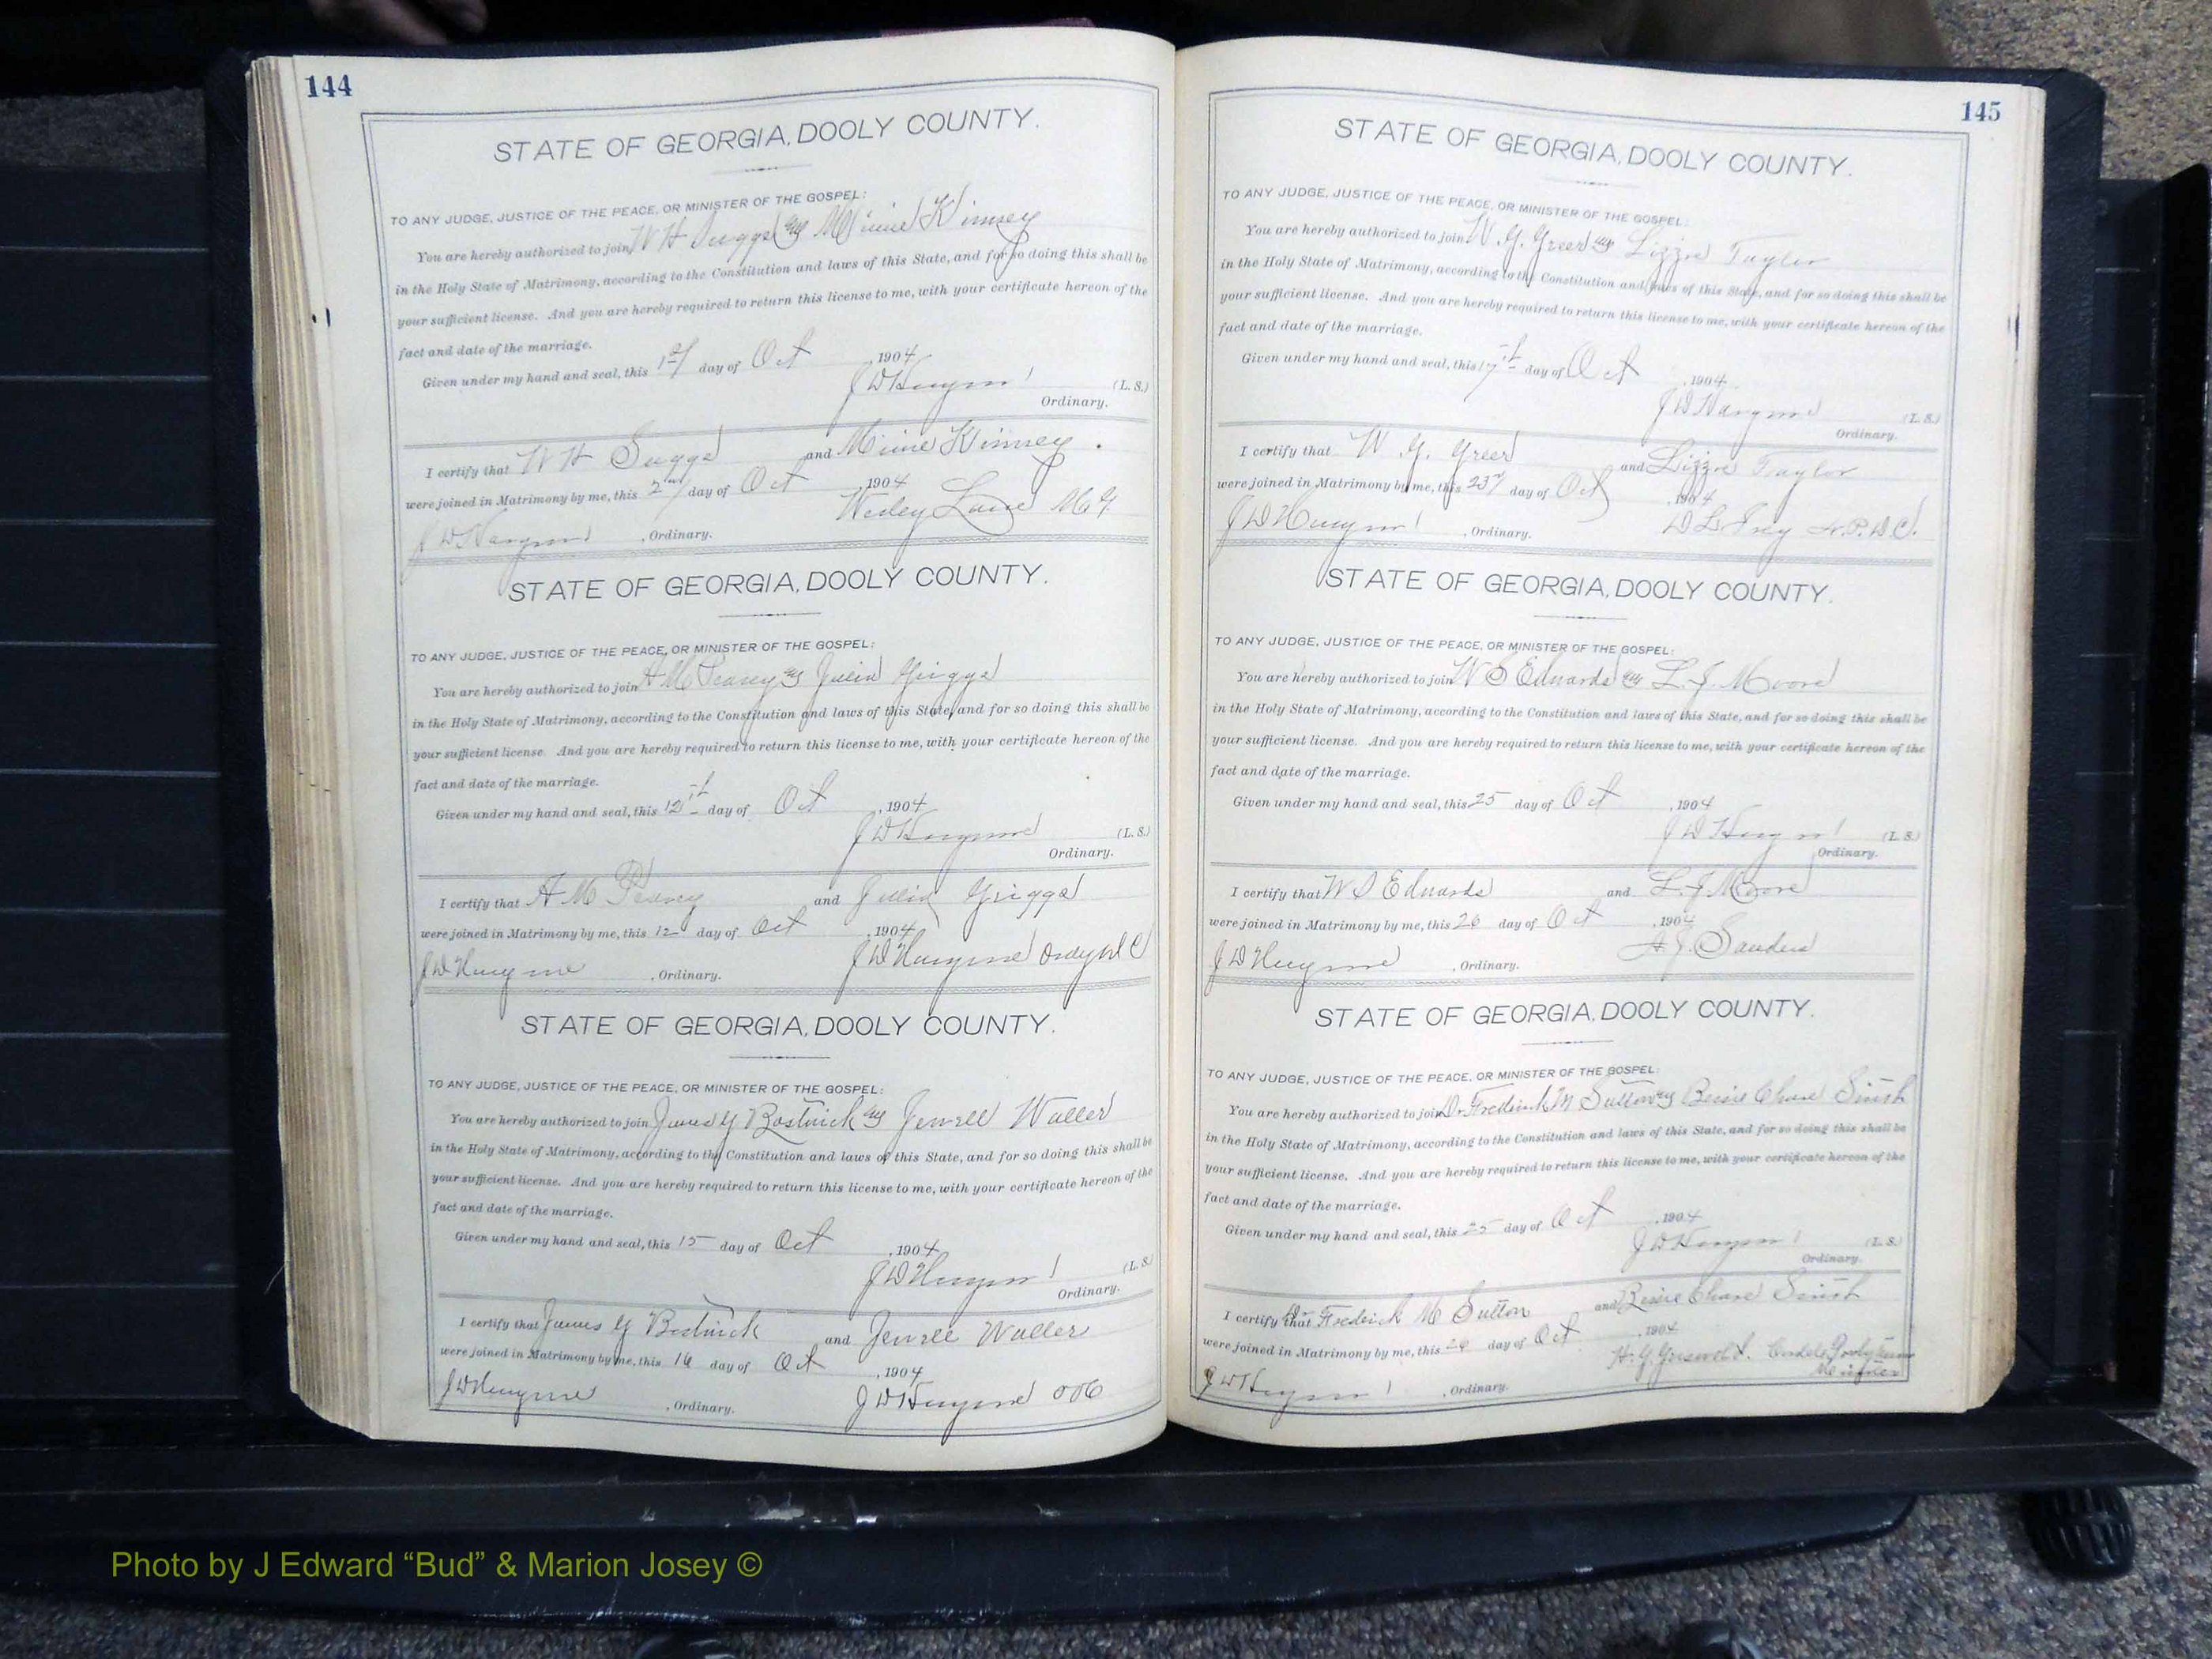 144
STATE OF GEORGIA, DOOLY COUNTY.
TO ANY JUDGE, JUSTICE OF THE PEACE, OR MINISTER OF THE GOSPEL:
You are hereby authorized to join W H Suggs and Minnie Kinney
in the Holy State of Matrimony, according to the Constitution and laws of this State, and for so doing this shall be
your sufficient license. And you are hereby required to return this license to me, with your certificate hereon of the
fact and date of the marriage.
Given under my hand and seal, this 1st day of Oct , 1904
(L. S.)
Ordinary.
I certify that W H Suggs and Minnie Kinney
were joined in Matrimony by me, this 2nd day of Oct , 1904
Wesley Lane M G
, Ordinary.
STATE OF GEORGIA, DOOLY COUNTY.
TO ANY JUDGE, JUSTICE OF THE PEACE, OR MINISTER OF THE GOSPEL:
You are hereby authorized to join A M Peavy and Julia Griggs
in the Holy State of Matrimony, according to the Constitution and laws of this State, and for so doing this shall be
your sufficient license. And you are hereby required to return this license to me, with your certificate hereon of the
fact and date of the marriage.
Given under my hand and seal, this 12 day of Oct , 1904
(L. S.)
Ordinary.
I certify that A M Peavy and Julia Griggs
were joined in Matrimony by me, this 12 day of Oct , 1904
, Ordinary.
STATE OF GEORGIA, DOOLY COUNTY.
TO ANY JUDGE, JUSTICE OF THE PEACE, OR MINISTER OF THE GOSPEL:
You are hereby authorized to join James Y Bostwick and Jewell Waller
in the Holy State of Matrimony, according to the Constitution and laws of this State, and for so doing this shall be
your sufficient license. And you are hereby required to return this license to me, with your certificate hereon of the
fact and date of the marriage.
Given under my hand and seal, this 15 day of Oct , 1904
(L. S.)
Ordinary.
I certify that James Y Bostwick and Jewell Waller
were joined in Matrimony by me, this 16 day of Oct , 1904
, Ordinary.
145
STATE OF GEORGIA, DOOLY COUNTY.
TO ANY JUDGE, JUSTICE OF THE PEACE, OR MINISTER OF THE GOSPEL:
You are hereby authorized to join W. G. Greer and Lizzie Taylor
in the Holy State of Matrimony, according to the Constitution and laws of this State, and for so doing this shall be
your sufficient license. And you are hereby required to return this license to me, with your certificate hereon of the
fact and date of the marriage.
Given under my hand and seal, this 17 day of Oct , 1904
(L. S.)
Ordinary.
I certify that W. G. Greer and Lizzie Taylor
were joined in Matrimony by me, this 23rd day of Oct , 1904
, Ordinary.
STATE OF GEORGIA, DOOLY COUNTY.
TO ANY JUDGE, JUSTICE OF THE PEACE, OR MINISTER OF THE GOSPEL:
You are hereby authorized to join W S Edwards and L. J. Moore
in the Holy State of Matrimony, according to the Constitution and laws of this State, and for so doing this shall be
your sufficient license. And you are hereby required to return this license to me, with your certificate hereon of the
fact and date of the marriage.
Given under my hand and seal, this 25 day of Oct , 1904
(L. S.)
Ordinary.
I certify that W S Edwards and L. J. Moore
were joined in Matrimony by me, this 26 day of Oct , 1904
Sanders
, Ordinary.
STATE OF GEORGIA, DOOLY COUNTY.
TO ANY JUDGE, JUSTICE OF THE PEACE, OR MINISTER OF THE GOSPEL:
You are hereby authorized to join Dr. Frederick M Sutton and Bessie Chase Smith
in the Holy State of Matrimony, according to the Constitution and laws of this State, and for so doing this shall be
your sufficient license. And you are hereby required to return this license to me, with your certificate hereon of the
fact and date of the marriage.
Given under my hand and seal, this 25 day of Oct , 1904
(L. S.)
Ordinary.
I certify that Dr Frederick M Sutton and Bessie Chase Smith
were joined in Matrimony by me, this 26 day of Oct , 1904
Minister
, Ordinary.
Photo by J Edward “Bud” & Marion Josey ©